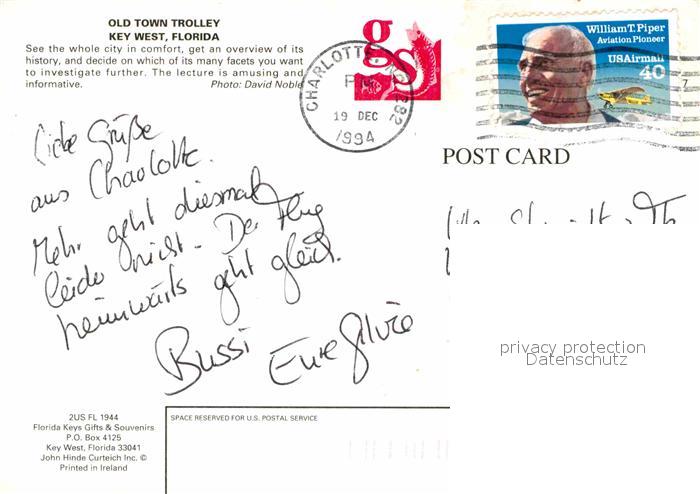 OLD TOWN TROLLEY
KEY WEST, FLORIDA
See the whole city in comfort, get an overview of its
history, and decide on which of its many facets you want
to investigate further. The lecture is amusing and
informative. Photo: David Noble
gs
CHARLOTTE, 282
PM
19 DEC
1994
William T. Piper
Aviation Pioneer
USAirmail
40
POST CARD
Liebe Grüße
aus Charlotte.
Mehr geht diesmal
leider nicht - Der Flug
heimwärts geht gleich.
Bussi
Eure Silvie
privacy protection
Datenschutz
2US FL 1944
Florida Keys Gifts & Souvenirs
P.O. Box 4125
Key West, Florida 33041
John Hinde Curteich Inc. ©
Printed in Ireland
SPACE RESERVED FOR U.S. POSTAL SERVICE